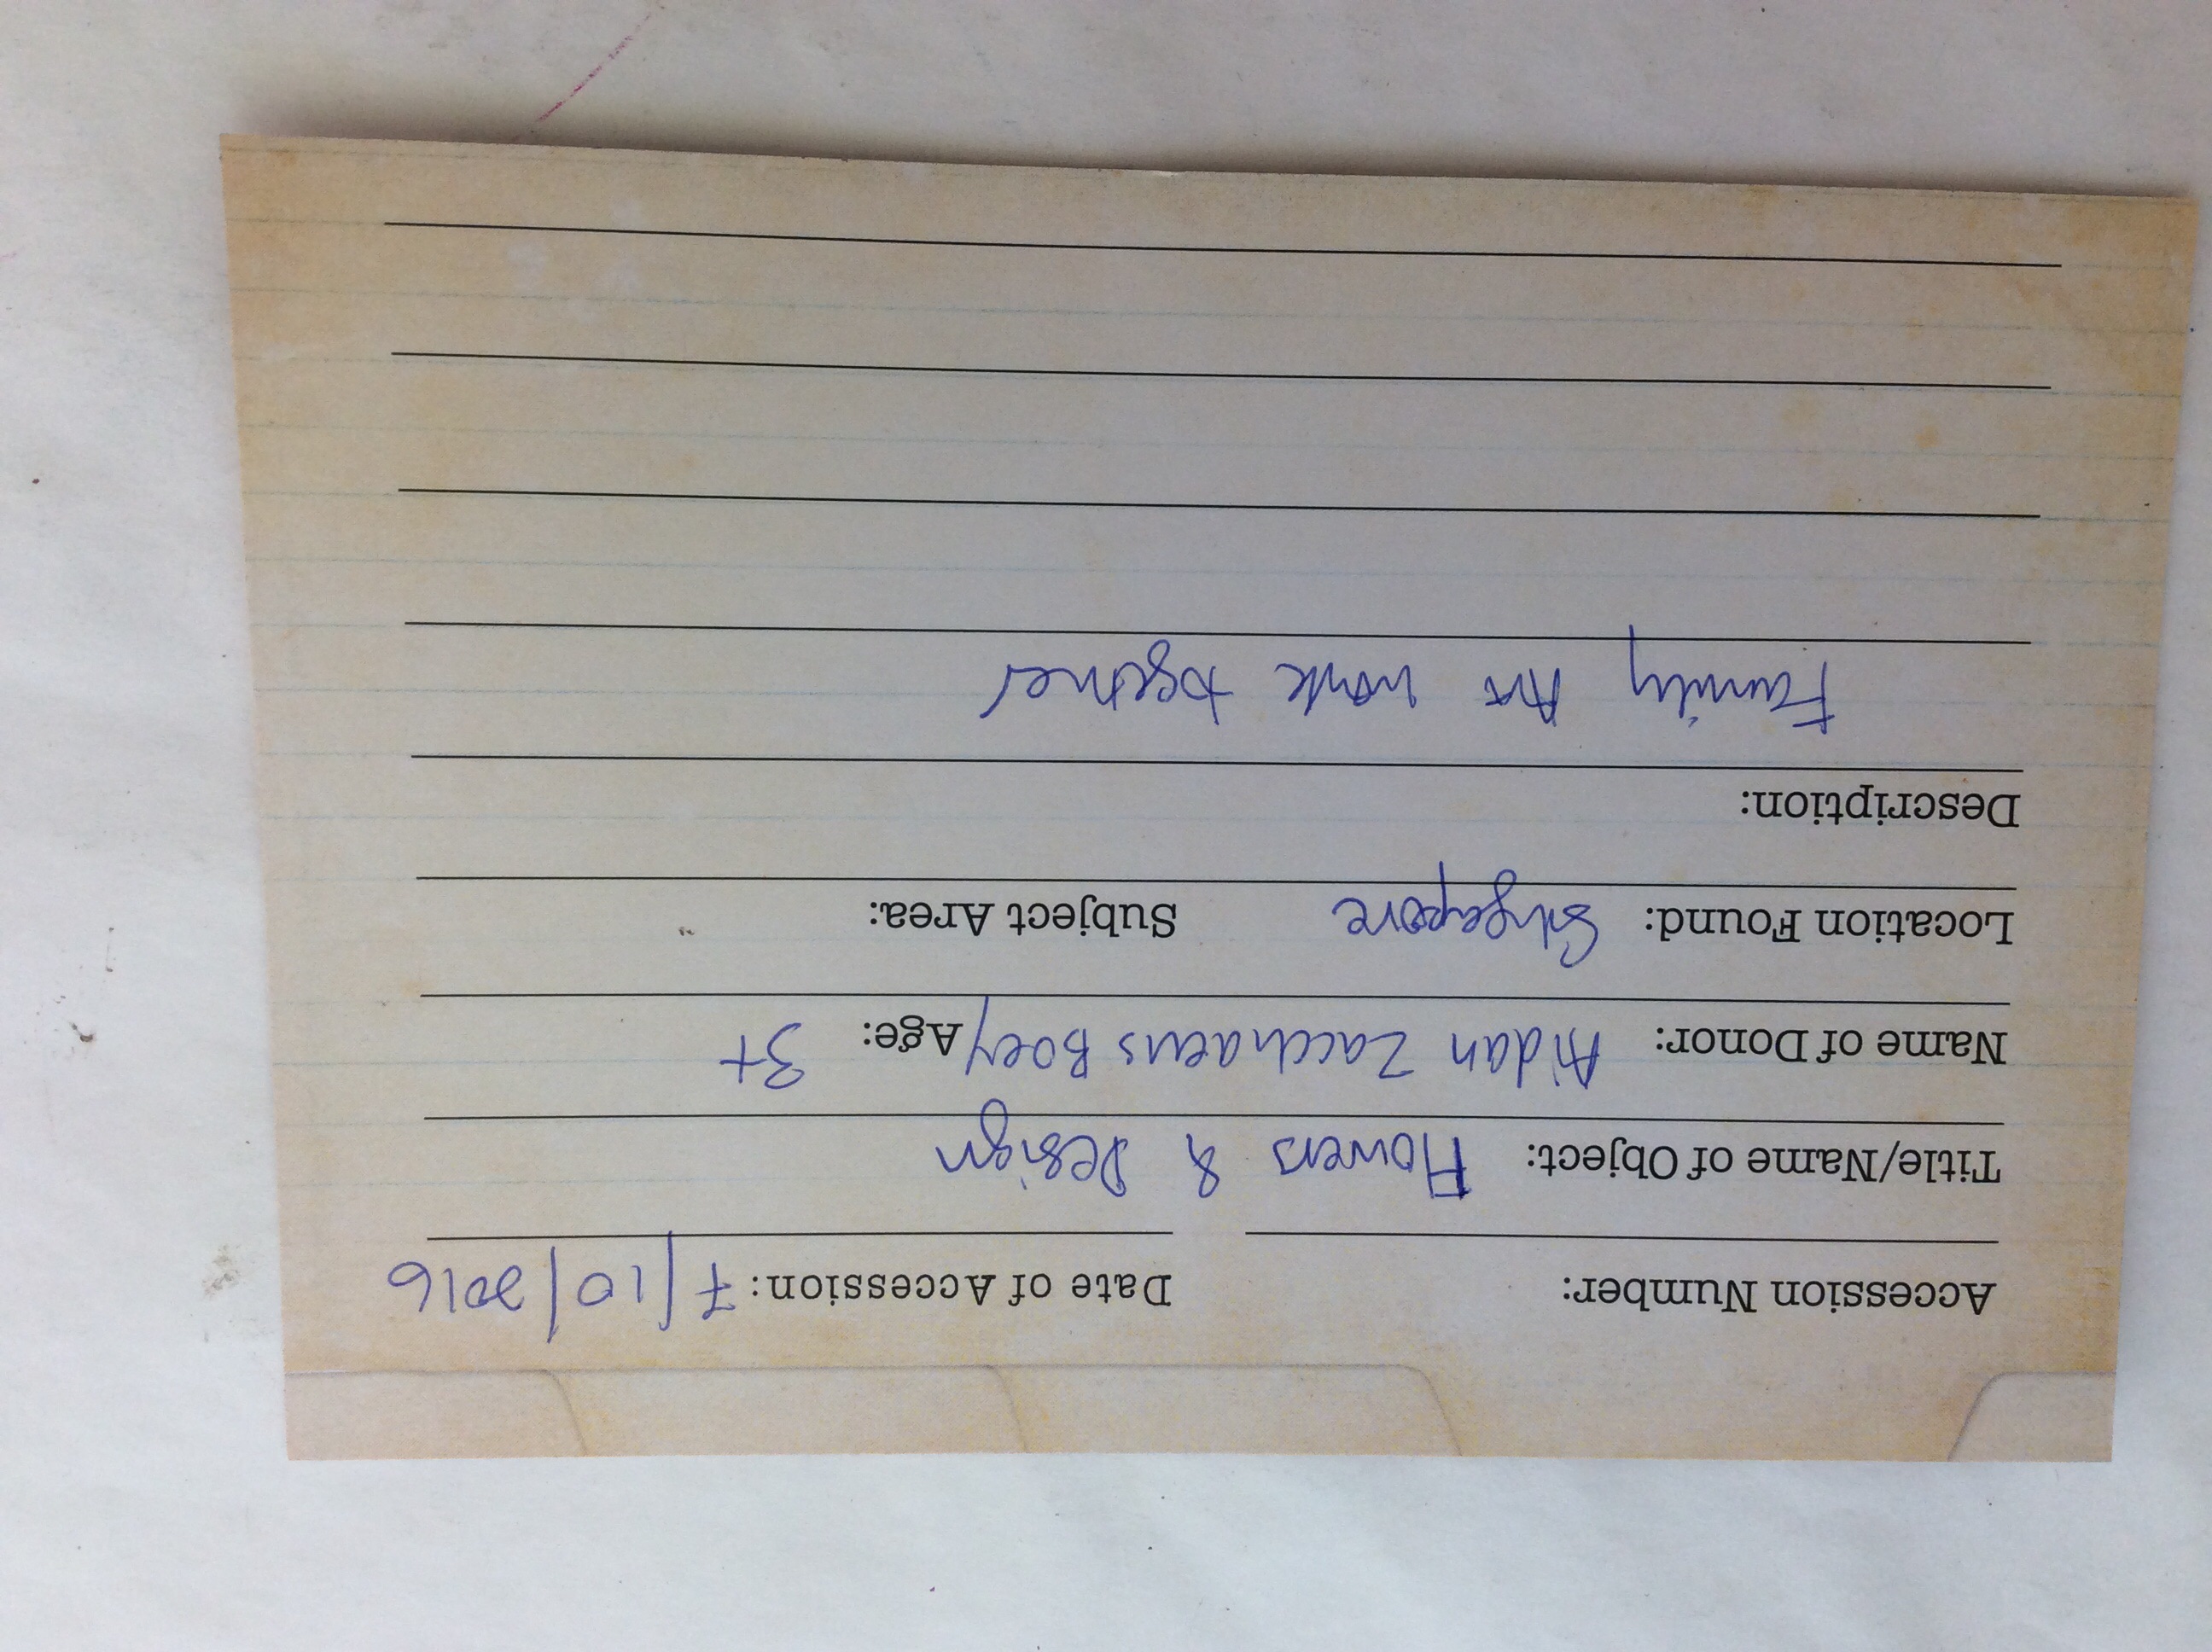 Accession Number: Date of Accession: 7/10/2016
Title/Name of Object: Flowers & Design
Name of Donor: Aidan Zacchaeus Boey Age: 3+
Location Found: Singapore Subject Area:
Description:
Family Art work together